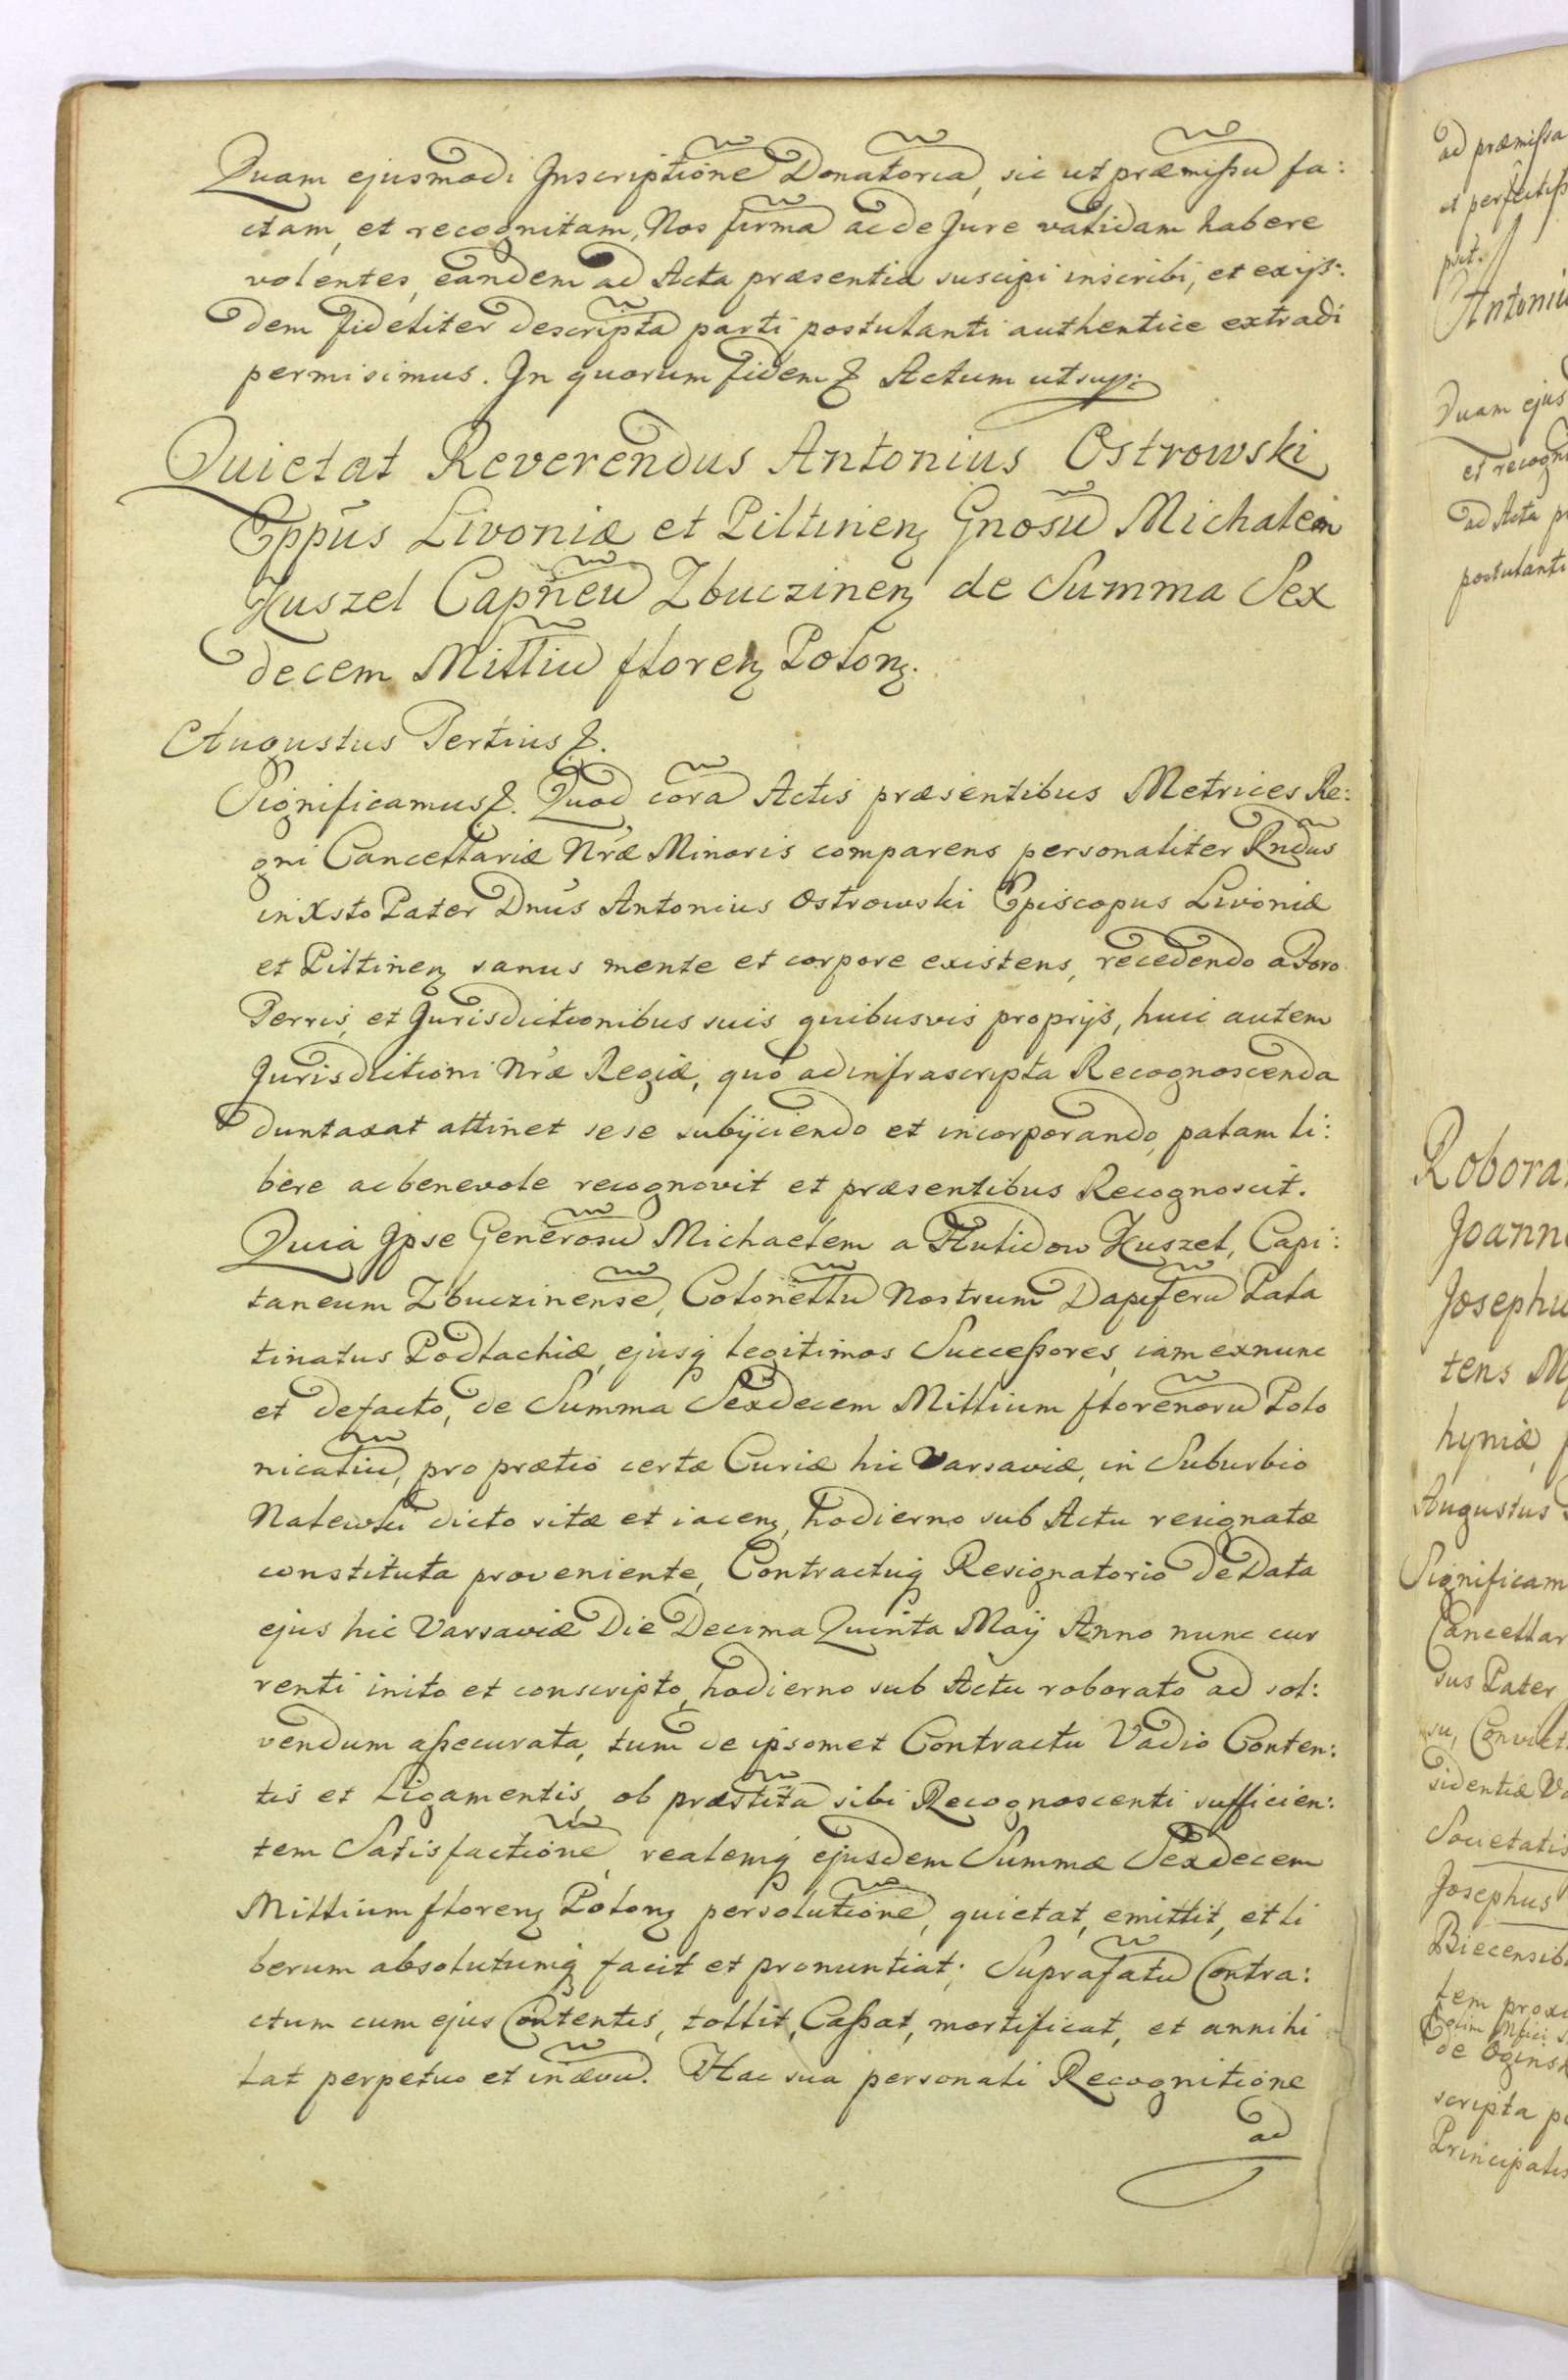 Quam ejusmodi Inscriptionē Donatoriā, sic ut præmißū fa:
ctam, et recognitam, Nos firmā ac de Jure validam habere
volentes, eandem ad Acta præsentia suscipi inscribi, et exijs:
dem fideliter descriptā parti postulanti authentice extradi
permisimus. In quorum fidem &. Actum ut sup:
Quietat Reverendus Antonius Ostrowski
Eppūs Livoniæ et Piltinen Gnosū Michalem
Kuszel Capneū Zbuczinen de Summa Sex
decem Milliū floren Polon.
Augustus Tertius &.
Significamus &. Quod corā Actis præsentibus Metrices Re:
gni Cancellariæ Nræ Minoris comparens personaliter Rndus
in Xsto Pater Dnus Antonius Ostrowski Episcopus Livoniæ
et Piltinen sanus mente et corpore existens, recedendo a Foro
Terris, et Jurisdictionibus suis quibusvis proprijs, huic autem
Jurisdictioni Nræ Regiæ, quo ad infrascripta Recognoscenda
duntaxat attinet sese subijciendo et incorporando, palam li:
bere ac benevole recognovit et præsentibus Recognoscit.
Quia Ipse Generosū Michaelem a Hulidow Kuszel, Capi:
taneum Zbuczinensē, Colonellū Nostrum Dapiferū Pala
tinatus Podlachiæ, ejusq legitimos Succeßores, iam exnunc
et defacto, de Summa Sexdecem Millium florenorū Polo
nicaliū, pro prætio certæ Curiæ hic Varsaviæ, in Suburbio
Nalewki dicto sitæ et iacen, hodierno sub Actu resignatæ
constituta proveniente, Contractuq Resignatorio de Data
ejus hic Varsaviæ Die Decima Quinta Maij Anno nunc cur
renti inito et conscripto, hodierno sub Actu roborato ad sol:
vendum aßecurata, tum de ipsomet Contractu Vadio Conten:
tis et Ligamentis, ob præstitā sibi Recognoscenti sufficien:
tem Satisfactionē, realemq ejusdem Summæ Sexdecem
Millium floren Polon persolutionē, quietat, emittit, et li
berum absolutumq facit et pronuntiat; Suprafatū Contra:
ctum cum ejus Contentis, tollit, Caßat, mortificat, et annihi
lat perpetuo et in ævū. Hac sua personali Recognitione
ad
ad præmißa
Antoniu
Quam ejus
et recogni
ad Acta pr
postulanti
Robora
Joann
Josephu
tens M
hyniæ,
Augustus
Significam
Cancellar
sus Pater
su, Convict
sidentiæ Va
Societatis
Josephus
Biecensib
tem prox
de Ogins
scripta p
Principalis